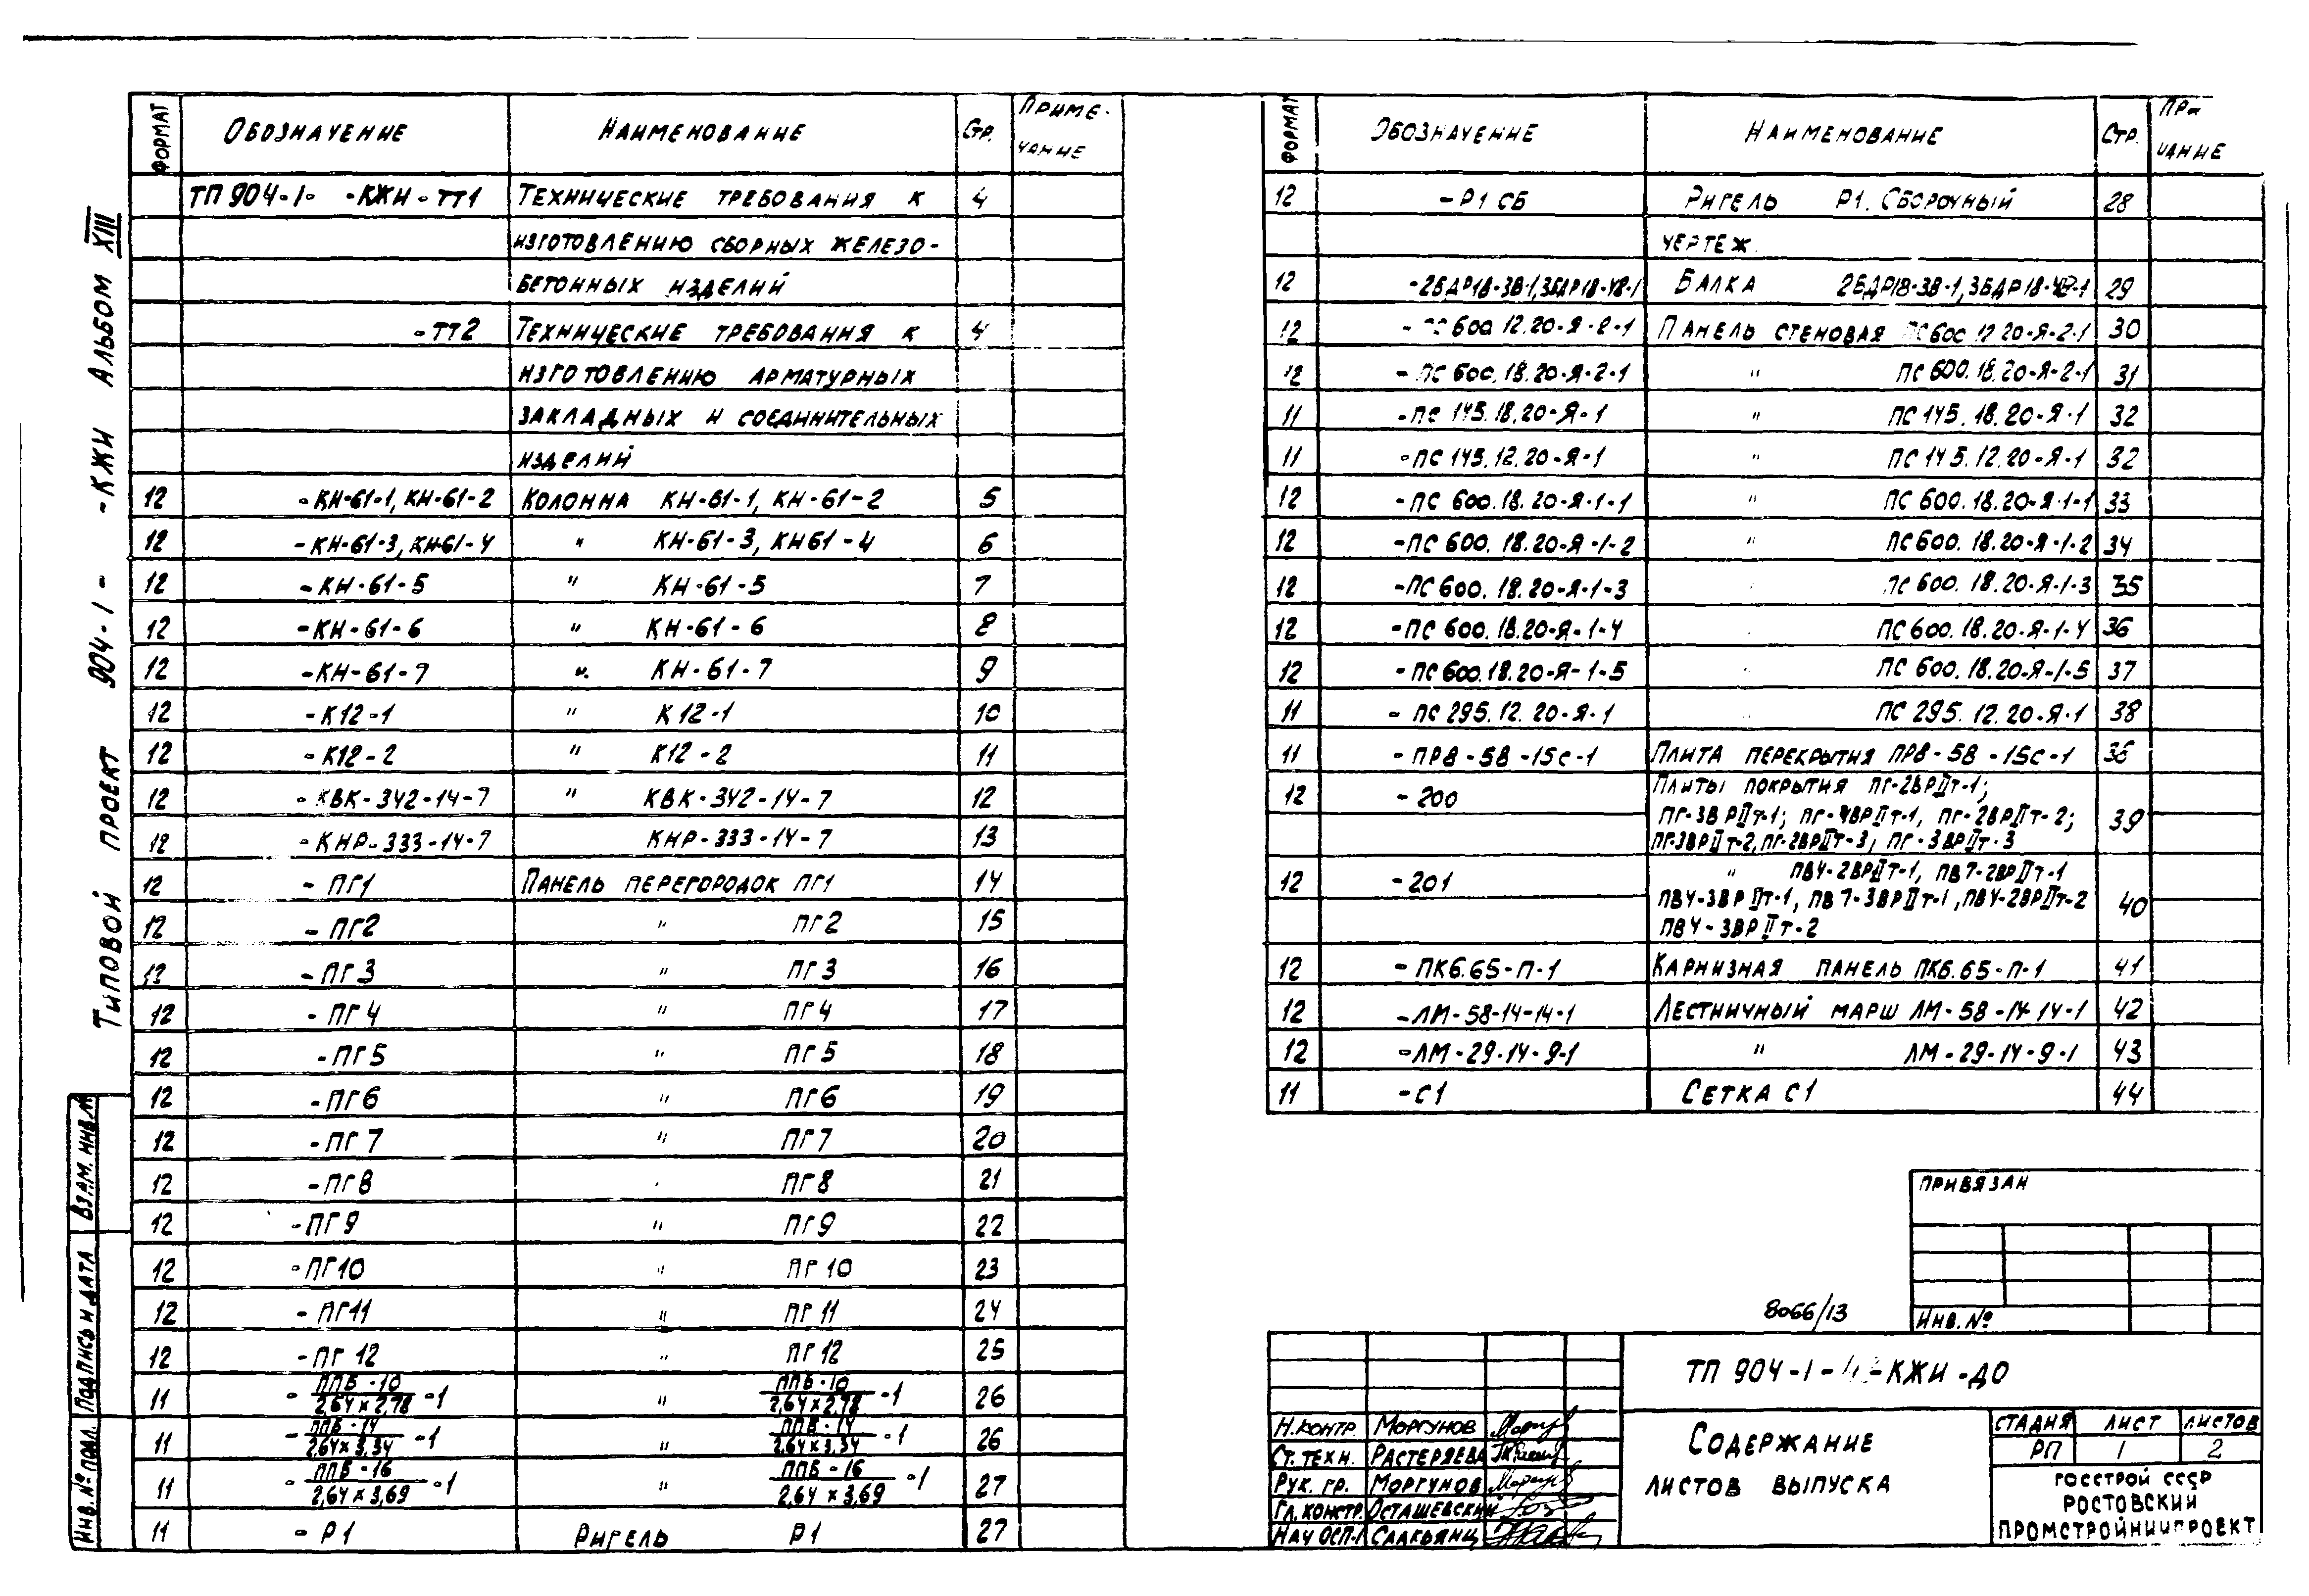 Типовой проект 904-1- -КЖИ Альбом XIII
Взам. инв. №
Подпись и дата
Инв. № подл.
Формат Обозначение Наименование Стр. Примечание
ТП 904-1- -КЖИ-ТТ1 Технические требования к 4
изготовлению сборных железо-
бетонных изделий
-ТТ2 Технические требования к 4
изготовлению арматурных
закладных и соединительных
изделий
12 -КН-61-1, КН-61-2 Колонна КН-61-1, КН-61-2 5
12 -КН-61-3, КН-61-4 " КН-61-3, КН61-4 6
12 -КН-61-5 " КН-61-5 7
12 -КН-61-6 " КН-61-6 8
12 -КН-61-7 " КН-61-7 9
12 -К12-1 " К12-1 10
12 -К12-2 " К12-2 11
12 -КВК-342-14-7 " КВК-342-14-7 12
12 -КНР-333-14-7 КНР-333-14-7 13
12 -ПГ1 Панель перегородок ПГ1 14
12 -ПГ2 " ПГ2 15
12 -ПГ3 " ПГ3 16
12 -ПГ4 " ПГ4 17
12 -ПГ5 " ПГ5 18
12 -ПГ6 " ПГ6 19
12 -ПГ7 " ПГ7 20
12 -ПГ8 ПГ8 21
12 -ПГ9 " ПГ9 22
12 -ПГ10 " ПГ10 23
12 -ПГ11 " ПГ11 24
12 -ПГ12 " ПГ12 25
11 - ППБ-10 / 2,64х2,78 -1 " ППБ-10 / 2,64х2,78 -1 26
11 - ППБ-14 / 2,64х3,34 -1 " ППБ-14 / 2,64х3,34 -1 26
11 - ППБ-16 / 2,64х3,69 -1 " ППБ-16 / 2,64х3,69 -1 27
11 -Р1 Ригель Р1 27
Формат Обозначение Наименование Стр. При
чание
12 -Р1 СБ Ригель Р1. Сборочный 28
чертеж.
12 -2БДР18-3В-1, 3БДР18-4В-1 Балка 2БДР18-3В-1, 3БДР18-4В-1 29
12 -ПС600.12.20-Я-2-1 Панель стеновая ПС600.12.20-Я-2-1 30
12 -ПС600.18.20-Я-2-1 " ПС600.18.20-Я-2-1 31
11 -ПС145.18.20-Я-1 " ПС145.18.20-Я-1 32
11 -ПС145.12.20-Я-1 " ПС145.12.20-Я-1 32
12 -ПС600.18.20-Я-1-1 " ПС600.18.20-Я-1-1 33
12 -ПС600.18.20-Я-1-2 " ПС600.18.20-Я-1-2 34
12 -ПС600.18.20-Я-1-3 ПС600.18.20-Я-1-3 35
12 -ПС600.18.20-Я-1-4 ПС600.18.20-Я-1-4 36
12 -ПС600.18.20-Я-1-5 ПС600.18.20-Я-1-5 37
11 -ПС295.12.20-Я-1 " ПС295.12.20-Я-1 38
11 -ПР8-58-15с-1 Плита перекрытия ПР8-58-15с-1
12 -200 Плиты покрытия ПГ-2ВРIIт-1;
ПГ-3ВРIIт-1; ПГ-4ВРIIт-1, ПГ-2ВРIIт-2; 39
ПГ-3ВРIIт-2, ПГ-2ВРIIт-3, ПГ-3ВРIIт-3
12 -201 " ПВ4-2ВРIIт-1, ПВ7-2ВРIIт-1
ПВ4-3ВРIIт-1, ПВ7-3ВРIIт-1, ПВ4-2ВРIIт-2 40
ПВ4-3ВРIIт-2
12 -ПК6.65-П-1 Карнизная панель ПК6.65-П-1 41
12 -ЛМ-58-14-14-1 Лестничный марш ЛМ-58-14-14-1 42
12 -ЛМ-29-14-9-1 " ЛМ-29-14-9-1 43
11 -С1 Сетка С1 44
Привязан
Инв. №
8066/13
ТП 904-1- -КЖИ-ДО
Н.контр. Моргунов
Ст. техн. Растеряева
Рук. гр. Моргунов
Гл. констр. Осташевский
Нач ОСП-1 Саакьянц
Содержание
листов выпуска
Стадия Лист Листов
РП 1 2
Госстрой СССР
Ростовский
Промстройниипроект